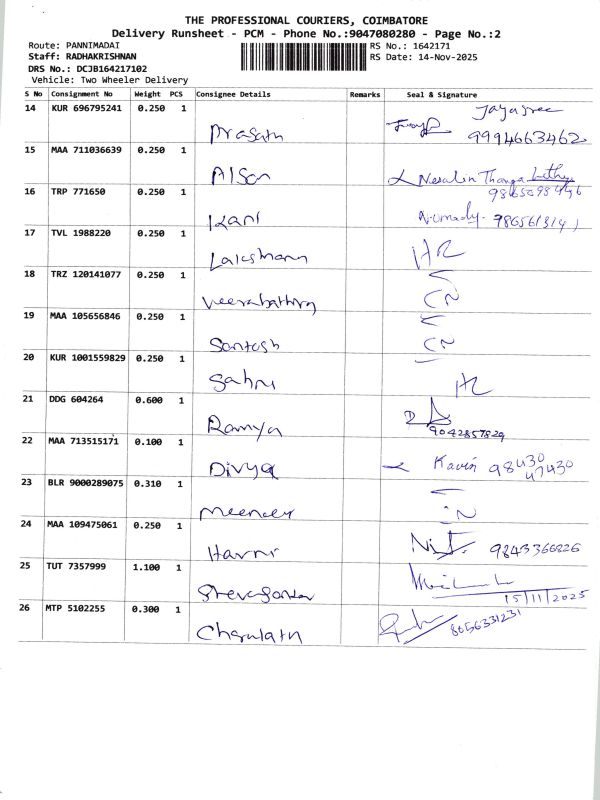 THE PROFESSIONAL COURIERS, COIMBATORE
Delivery Runsheet - PCM - Phone No.:9047080280 - Page No.:2
Route: PANNIMADAI
RS No.: 1642171
Staff: RADHAKRISHNAN
RS Date: 14-Nov-2025
DRS No.: DCJB164217102
Vehicle: Two Wheeler Delivery
S No Consignment No Weight PCS Consignee Details Remarks Seal & Signature
14 KUR 696795241 0.250 1 Prasath Jayasree 9994663462
15 MAA 711036639 0.250 1 Alson
16 TRP 771650 0.250 1 Kani
17 TVL 1988220 0.250 1 Lakshmann HR
18 TRZ 120141077 0.250 1 Veerabathirg CN
19 MAA 105656846 0.250 1 Santosh CN
20 KUR 1001559829 0.250 1 Sahni
21 DDG 604264 0.600 1 Ramya 9042857829
22 MAA 713515171 0.100 1 Divya Kavin 98430 47430
23 BLR 9000289075 0.310 1
24 MAA 109475061 0.250 1 Harni 9843366826
25 TUT 7357999 1.100 1 15/11/2025
26 MTP 5102255 0.300 1 Charulath 8056331231